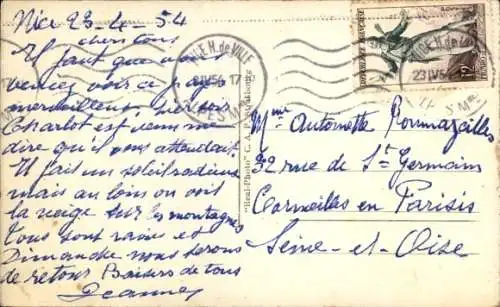 Nice 23-4-54
chers tous
Il faut que vous
veniez voir ce pays
merveilleux, hier soir
Charlot est venu me
dire qu'il vous attendait.
Il fait un soleil radieux
mais au loin on voit
la neige sur les montagnes
tous sont ravis et
Dimanche nous serons
de retour Baisers de tous
Jeanne
"Real-Photo" C. A. P. Strasbourg
NICE H. de VILLE
17
ALPES Mmes
REPUBLIQUE FRANÇAISE
Mme Antoinette
32 rue de St Germain
Cormeilles en Parisis
Seine-et-Oise